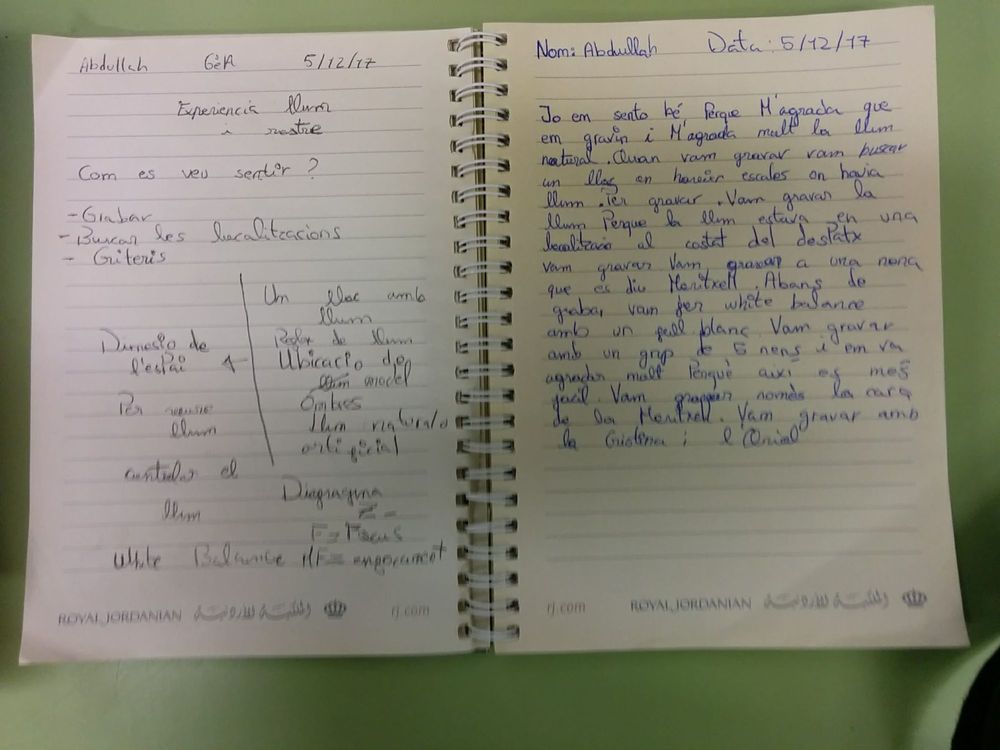 Abdullah 6èA 5/12/17
Experiencia llum
i rostre
Com es veu sentir ?
- Grabar
- Buscar les localitzacions
- Criteris
Un lloc amb
llum
de llum
Ubicacio del
model
de
l'espai
Ombres
Per
llum
llum natural o
artificial
controlar el
llum
Diagragma
Z -
F = Focus
White Balance
ROYAL JORDANIAN الملكية الأردنية rj.com
Nom: Abdullah Data: 5/12/17
Jo em sento bé Perque M'agrada que
em gravin i M'agrada molt la llum
natural. Quan vam gravar vam buscar
un lloc en escales on havia
llum. Per gravar. Vam gravar la
llum Perque la llum estava en una
al costat del desPatx
vam gravar Vam gravar a una nena
que es diu Meritxell. Abans de
grabar vam fer white balance
amb un full blanc. Vam gravar
amb un grup de 5 nens i em va
agradar molt Perquè així es mes
facil. Vam gravar nomès la cara
de la Meritxell. Vam gravar amb
la Cristina i l'Oriol
rj.com ROYAL JORDANIAN الملكية الأردنية